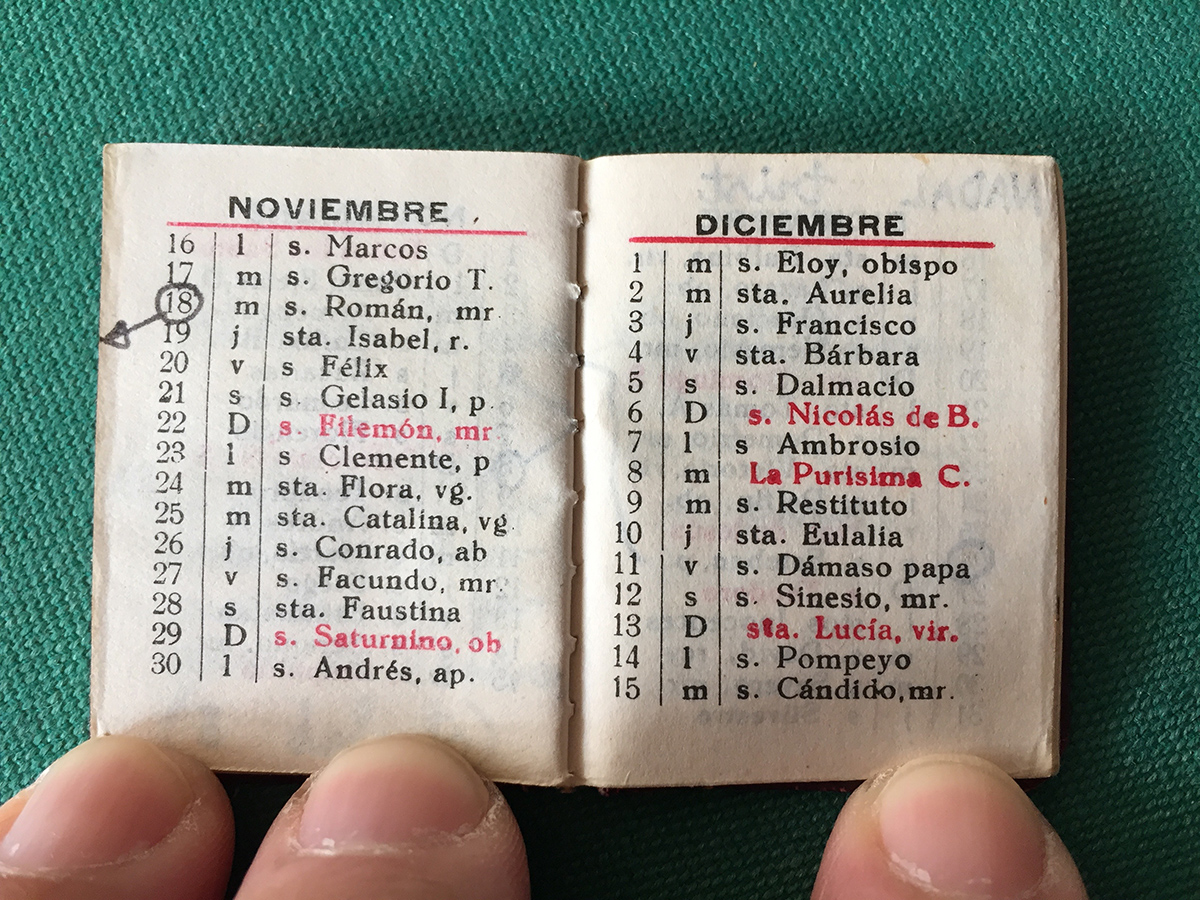 NOVIEMBRE
16 l s. Marcos
17 m s. Gregorio T.
18 m s. Román, mr
19 j sta. Isabel, r.
20 v s Félix
21 s s. Gelasio I, p.
22 D s. Filemón, mr
23 l s Clemente, p
24 m sta. Flora, vg.
25 m sta. Catalina, vg.
26 j s. Conrado, ab
27 v s. Facundo, mr.
28 s sta. Faustina
29 D s. Saturnino, ob
30 l s. Andrés, ap.
DICIEMBRE
1 m s. Eloy, obispo
2 m sta. Aurelia
3 j s. Francisco
4 v sta. Bárbara
5 s s. Dalmacio
6 D s. Nicolás de B.
7 l s Ambrosio
8 m La Purisima C.
9 m s. Restituto
10 j sta. Eulalia
11 v s. Dámaso papa
12 s s. Sinesio, mr.
13 D sta. Lucía, vir.
14 l s. Pompeyo
15 m s. Cándido, mr.
NADAL trist